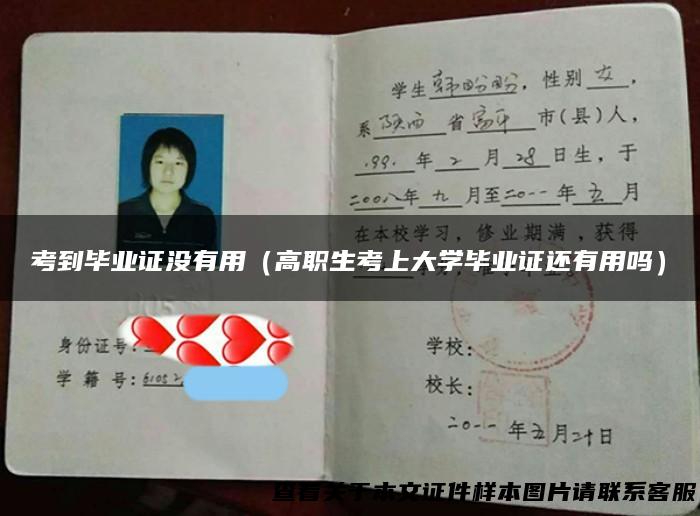 学生韩盼盼，性别女，
系陕西省富平市(县)人，
199.年2月28日生，于
二00八年九月至二0一一年五月
在本校学习，修业期满，获得
考到毕业证没有用（高职生考上大学毕业证还有用吗）
身份证号：
学籍号：61052
学校：
校长：
二0一一年五月二十日
查看关于本文证件样本图片请联系客服